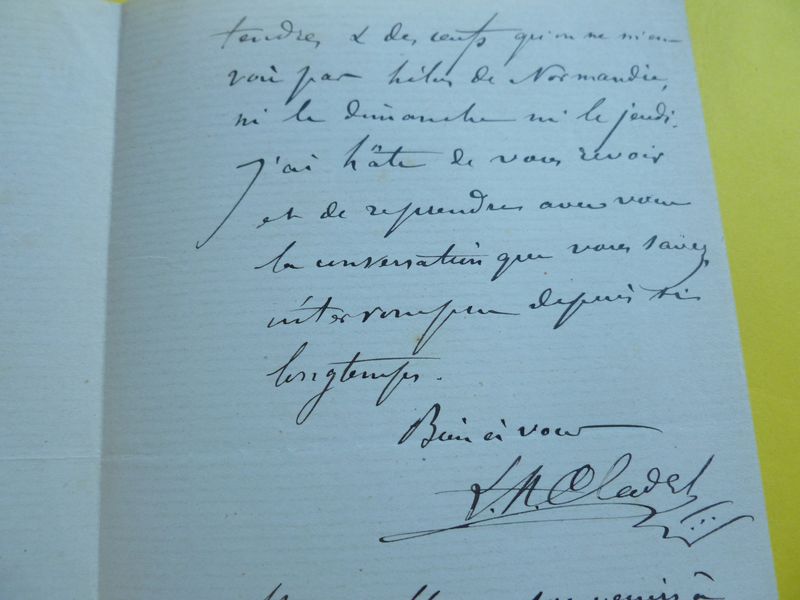 tendres & des œufs qu'on ne m'en-
voie par hélas de Normandie,
ni le dimanche ni le jeudi.
j'ai hâte de vous revoir
et de reprendre avec vous
la conversation que vous savez
interrompue depuis si
longtemps.
Bien à vous
L. A. Cladel
venir à